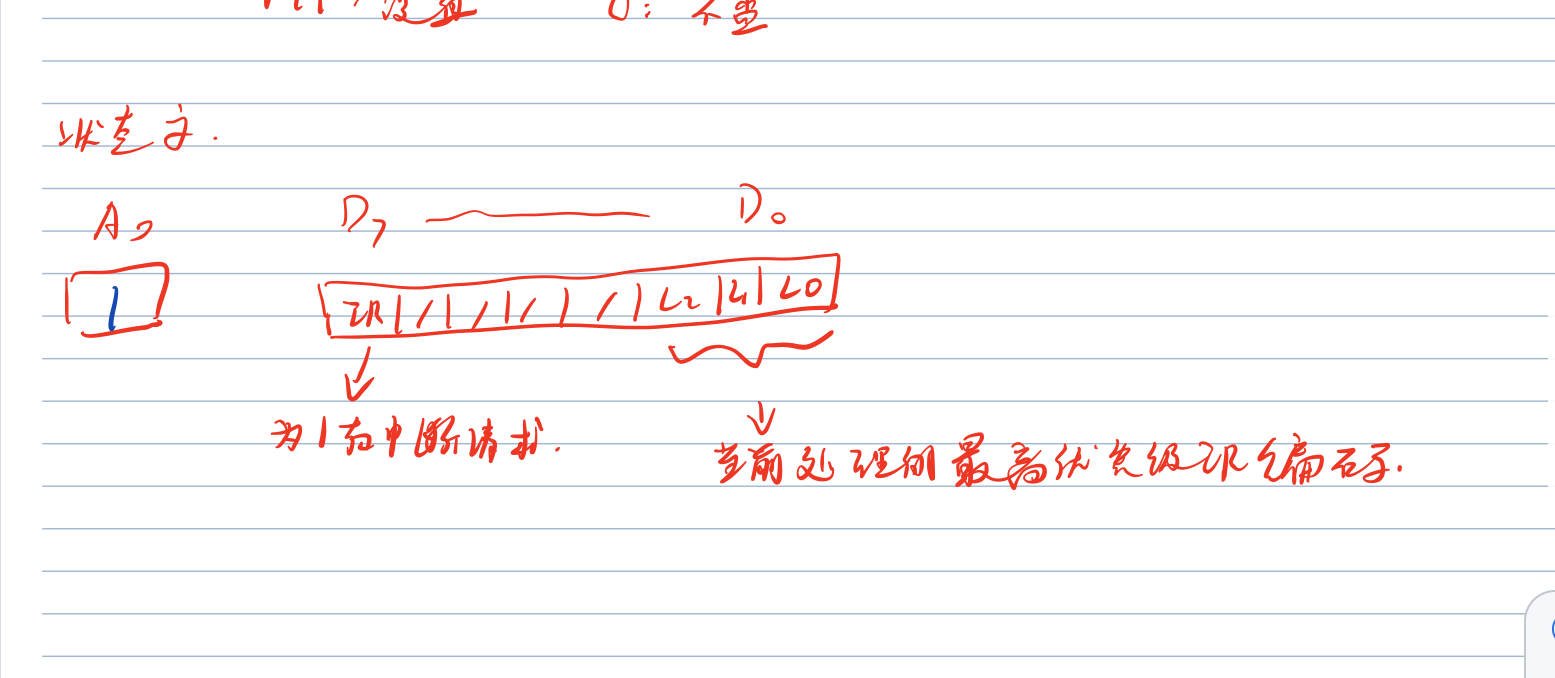 设置 0: 不置
状态字.
A0 D7 —— D0
1 IR / / / / L2 L1 L0
为1有中断请求.
当前处理的最高优先级IR编码.